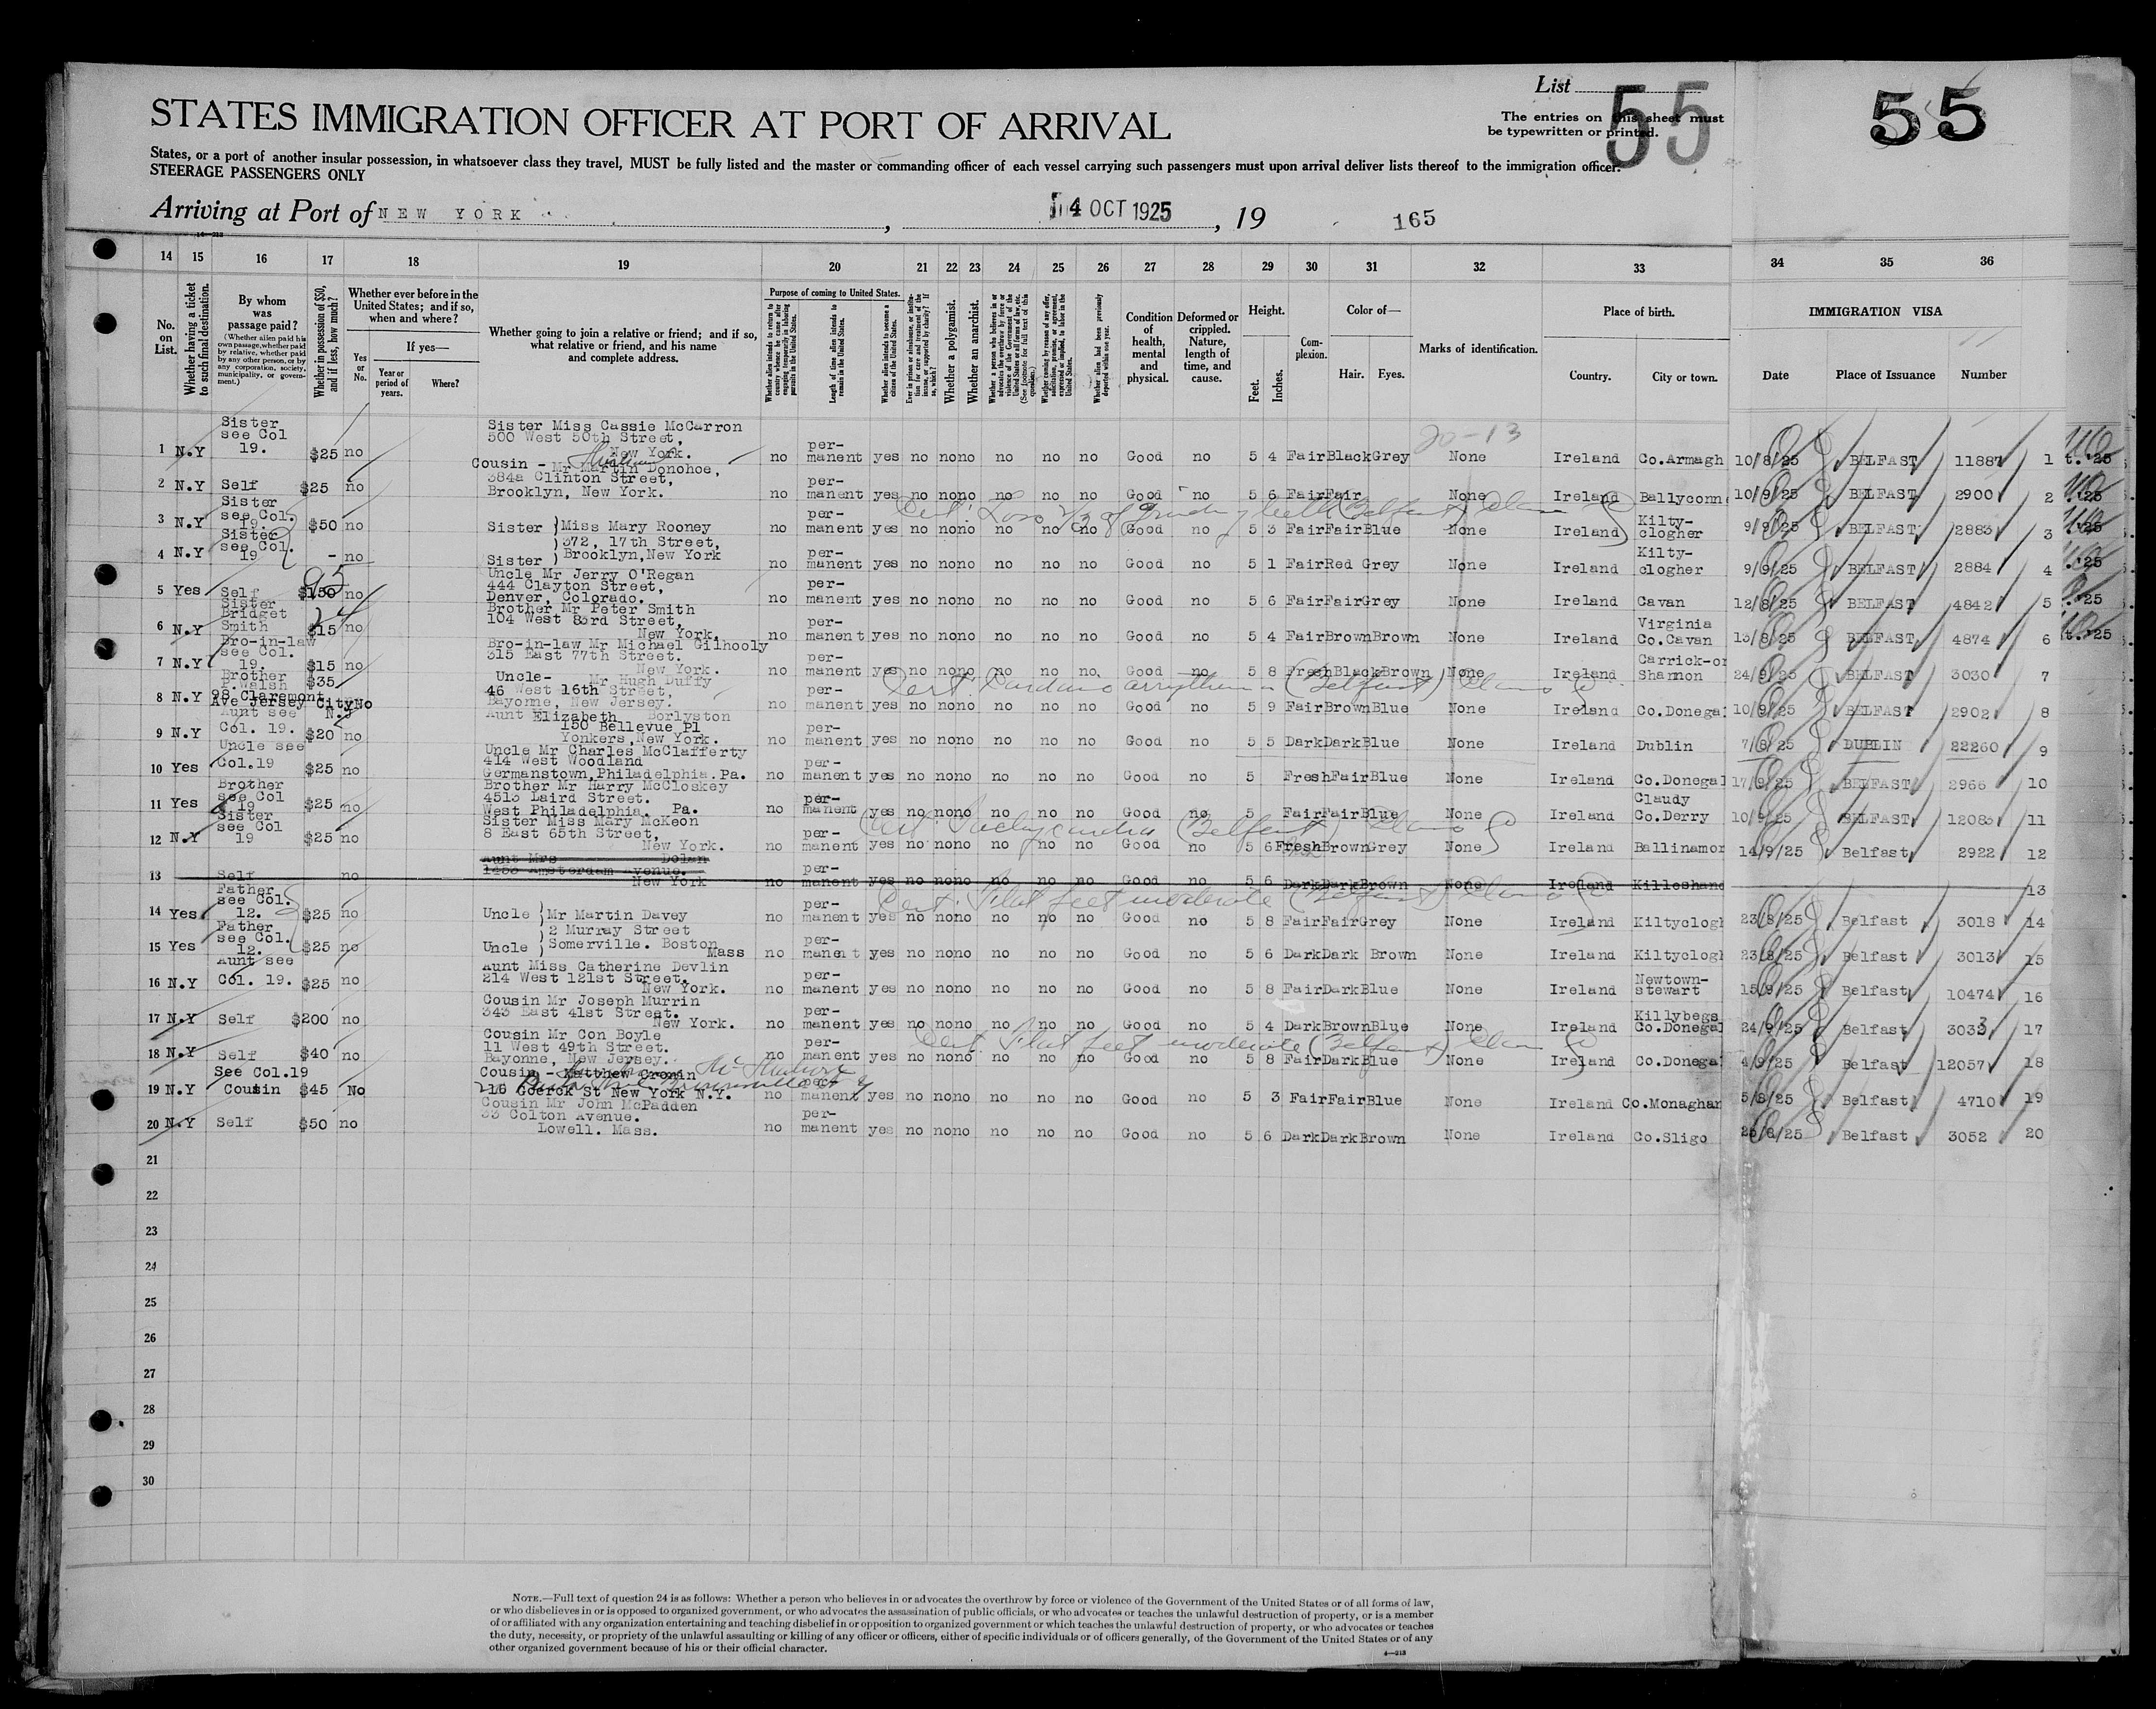 List
55
55
The entries on this sheet must
be typewritten or printed.
STATES IMMIGRATION OFFICER AT PORT OF ARRIVAL
States, or a port of another insular possession, in whatsoever class they travel, MUST be fully listed and the master or commanding officer of each vessel carrying such passengers must upon arrival deliver lists thereof to the immigration officer.
STEERAGE PASSENGERS ONLY
Arriving at Port of NEW YORK , 4 OCT 1925 , 19 165
14 15 16 17 18 19 20 21 22 23 24 25 26 27 28 29 30 31 32 33 34 35 36
No. on List.
Whether having a ticket to such final destination.
By whom was passage paid?
(Whether alien paid his own passage, whether paid by relative, whether paid by any other person, or by any corporation, society, municipality, or government.)
Whether in possession of $50, and if less, how much?
Whether ever before in the United States; and if so, when and where?
Yes or No.
If yes—
Year or period of years.
Where?
Whether going to join a relative or friend; and if so, what relative or friend, and his name and complete address.
Purpose of coming to United States.
Whether alien intends to return to country whence he came after engaging temporarily in laboring pursuits in the United States.
Length of time alien intends to remain in the United States.
Whether alien intends to become a citizen of the United States.
Whether a polygamist.
Whether an anarchist.
Whether coming by reason of any offer, solicitation, promise, or agreement, expressed or implied, to labor in the United States.
Whether alien had been previously deported within one year.
Condition of health, mental and physical.
Deformed or crippled. Nature, length of time, and cause.
Height.
Feet. Inches.
Complexion.
Color of—
Hair. Eyes.
Marks of identification.
Place of birth.
Country. City or town.
IMMIGRATION VISA
Date Place of Issuance Number
20-13
1 N.Y Sister see Col 19. $25 no Sister Miss Cassie McCarron 500 West 50th Street, New York. no permanent yes no no no no no no Good no 5 4 Fair Black Grey None Ireland Co.Armagh 10/8/25 BELFAST 11887 1
2 N.Y Self $25 no Cousin - Mr Martin Donohoe, 384a Clinton Street, Brooklyn, New York. no permanent yes no no no no no no Good no 5 6 Fair Fair None Ireland Ballyconn 10/9/25 BELFAST 2900 2
Cert: Loss 2/3 of Grinding teeth (Belfast)
3 N.Y Sister see Col. 19. $50 no Sister Miss Mary Rooney no permanent yes no no no no no no Good no 5 3 Fair Fair Blue None Ireland Kilty-clogher 9/9/25 BELFAST 2883 3
372, 17th Street, Brooklyn, New York
4 N.Y Sister see Col. 19 - no Sister no permanent yes no no no no no no Good no 5 1 Fair Red Grey None Ireland Kilty-clogher 9/9/25 BELFAST 2884 4
5 Yes Self $150 95 no Uncle Mr Jerry O'Regan 444 Clayton Street, Denver, Colorado. no permanent yes no no no no no no Good no 5 6 Fair Fair Grey None Ireland Cavan 12/8/25 BELFAST 4842 5
6 N.Y Sister Bridget Smith $15 no Brother Mr Peter Smith 104 West 83rd Street, New York. no permanent yes no no no no no no Good no 5 4 Fair Brown Brown None Ireland Virginia Co.Cavan 13/8/25 BELFAST 4874 6
7 N.Y Bro-in-law see Col. 19. $15 no Bro-in-law Mr Michael Gilhooly 315 East 77th Street. New York. no permanent yes no no no no no no Good no 5 8 Fresh Black Brown None Ireland Carrick-on Shannon 24/9/25 BELFAST 3030 7
8 N.Y Brother P.Walsh 98 Claremont Ave Jersey City N.J $35 No Uncle- Mr Hugh Duffy 46 West 16th Street, Bayonne, New Jersey. no permanent yes no no no no no no Good no 5 9 Fair Brown Blue None Ireland Co.Donegal 10/9/25 BELFAST 2902 8
9 N.Y Aunt see Col. 19. $20 no Aunt Elizabeth Borlyston 150 Bellevue Pl Yonkers, New York. no permanent yes no no no no no no Good no 5 5 Dark Dark Blue None Ireland Dublin 7/8/25 DUBLIN 22260 9
10 Yes Uncle see Col.19 $25 no Uncle Mr Charles McClafferty 414 West Woodland Germanstown, Philadelphia. Pa. no permanent yes no no no no no no Good no 5 Fresh Fair Blue None Ireland Co.Donegal 17/9/25 BELFAST 2966 10
11 Yes Brother see Col 19 $25 no Brother Mr Harry McCloskey 4513 Laird Street. West Philadelphia. Pa. no permanent yes no no no no no no Good no 5 Fair Fair Blue None Ireland Claudy Co.Derry 10/9/25 BELFAST 12083 11
Cert: Tachycardia (Belfast)
12 N.Y Sister see Col 19 $25 no Sister Miss Mary McKeon 8 East 65th Street, New York. no permanent yes no no no no no no Good no 5 6 Fresh Brown Grey None Ireland Ballinamor 14/9/25 Belfast 2922 12
13 Self no Aunt Mrs Dolan 1453 Amsterdam Avenue. New York no permanent yes no no no no no no Good no 5 6 Dark Dark Brown None Ireland Killeshand 13
Cert: Flat feet moderate (Belfast)
14 Yes Father see Col. 12. $25 no Uncle Mr Martin Davey no permanent yes no no no no no no Good no 5 8 Fair Fair Grey None Ireland Kiltyclogh 23/8/25 Belfast 3018 14
2 Murray Street Somerville. Boston Mass
15 Yes Father see Col. 12. $25 no Uncle no permanent yes no no no no no no Good no 5 6 Dark Dark Brown None Ireland Kiltyclogh 23/8/25 Belfast 3013 15
16 N.Y Aunt see Col. 19. $25 no Aunt Miss Catherine Devlin 214 West 121st Street. New York. no permanent yes no no no no no no Good no 5 8 Fair Dark Blue None Ireland Newtown-stewart 15/9/25 Belfast 10474 16
17 N.Y Self $200 no Cousin Mr Joseph Murrin 343 East 41st Street. New York. no permanent yes no no no no no no Good no 5 4 Dark Brown Blue None Ireland Killybegs Co.Donegal 24/9/25 Belfast 3033 17
Cert: Flat feet moderate (Belfast)
18 N.Y Self $40 no Cousin Mr Con Boyle 11 West 49th Street. Bayonne, New Jersey. no permanent yes no no no no no no Good no 5 8 Fair Dark Blue None Ireland Co.Donegal 4/9/25 Belfast 12057 18
19 N.Y See Col.19 Cousin $45 No Cousin - Matthew Cronin 216 Goerck St New York N.Y. no permanent yes no no no no no no Good no 5 3 Fair Fair Blue None Ireland Co.Monaghan 5/8/25 Belfast 4710 19
20 N.Y Self $50 no Cousin Mr John McPadden 33 Colton Avenue. Lowell. Mass. no permanent yes no no no no no no Good no 5 6 Dark Dark Brown None Ireland Co.Sligo 25/8/25 Belfast 3052 20
21
22
23
24
25
26
27
28
29
30
NOTE.—Full text of question 24 is as follows: Whether a person who believes in or advocates the overthrow by force or violence of the Government of the United States or of all forms of law,
or who disbelieves in or is opposed to organized government, or who advocates the assassination of public officials, or who advocates or teaches the unlawful destruction of property, or is a member
of or affiliated with any organization entertaining and teaching disbelief in or opposition to organized government or which teaches the unlawful destruction of property, or who advocates or teaches
the duty, necessity, or propriety of the unlawful assaulting or killing of any officer or officers, either of specific individuals or of officers generally, of the Government of the United States or of any
other organized government because of his or their official character.